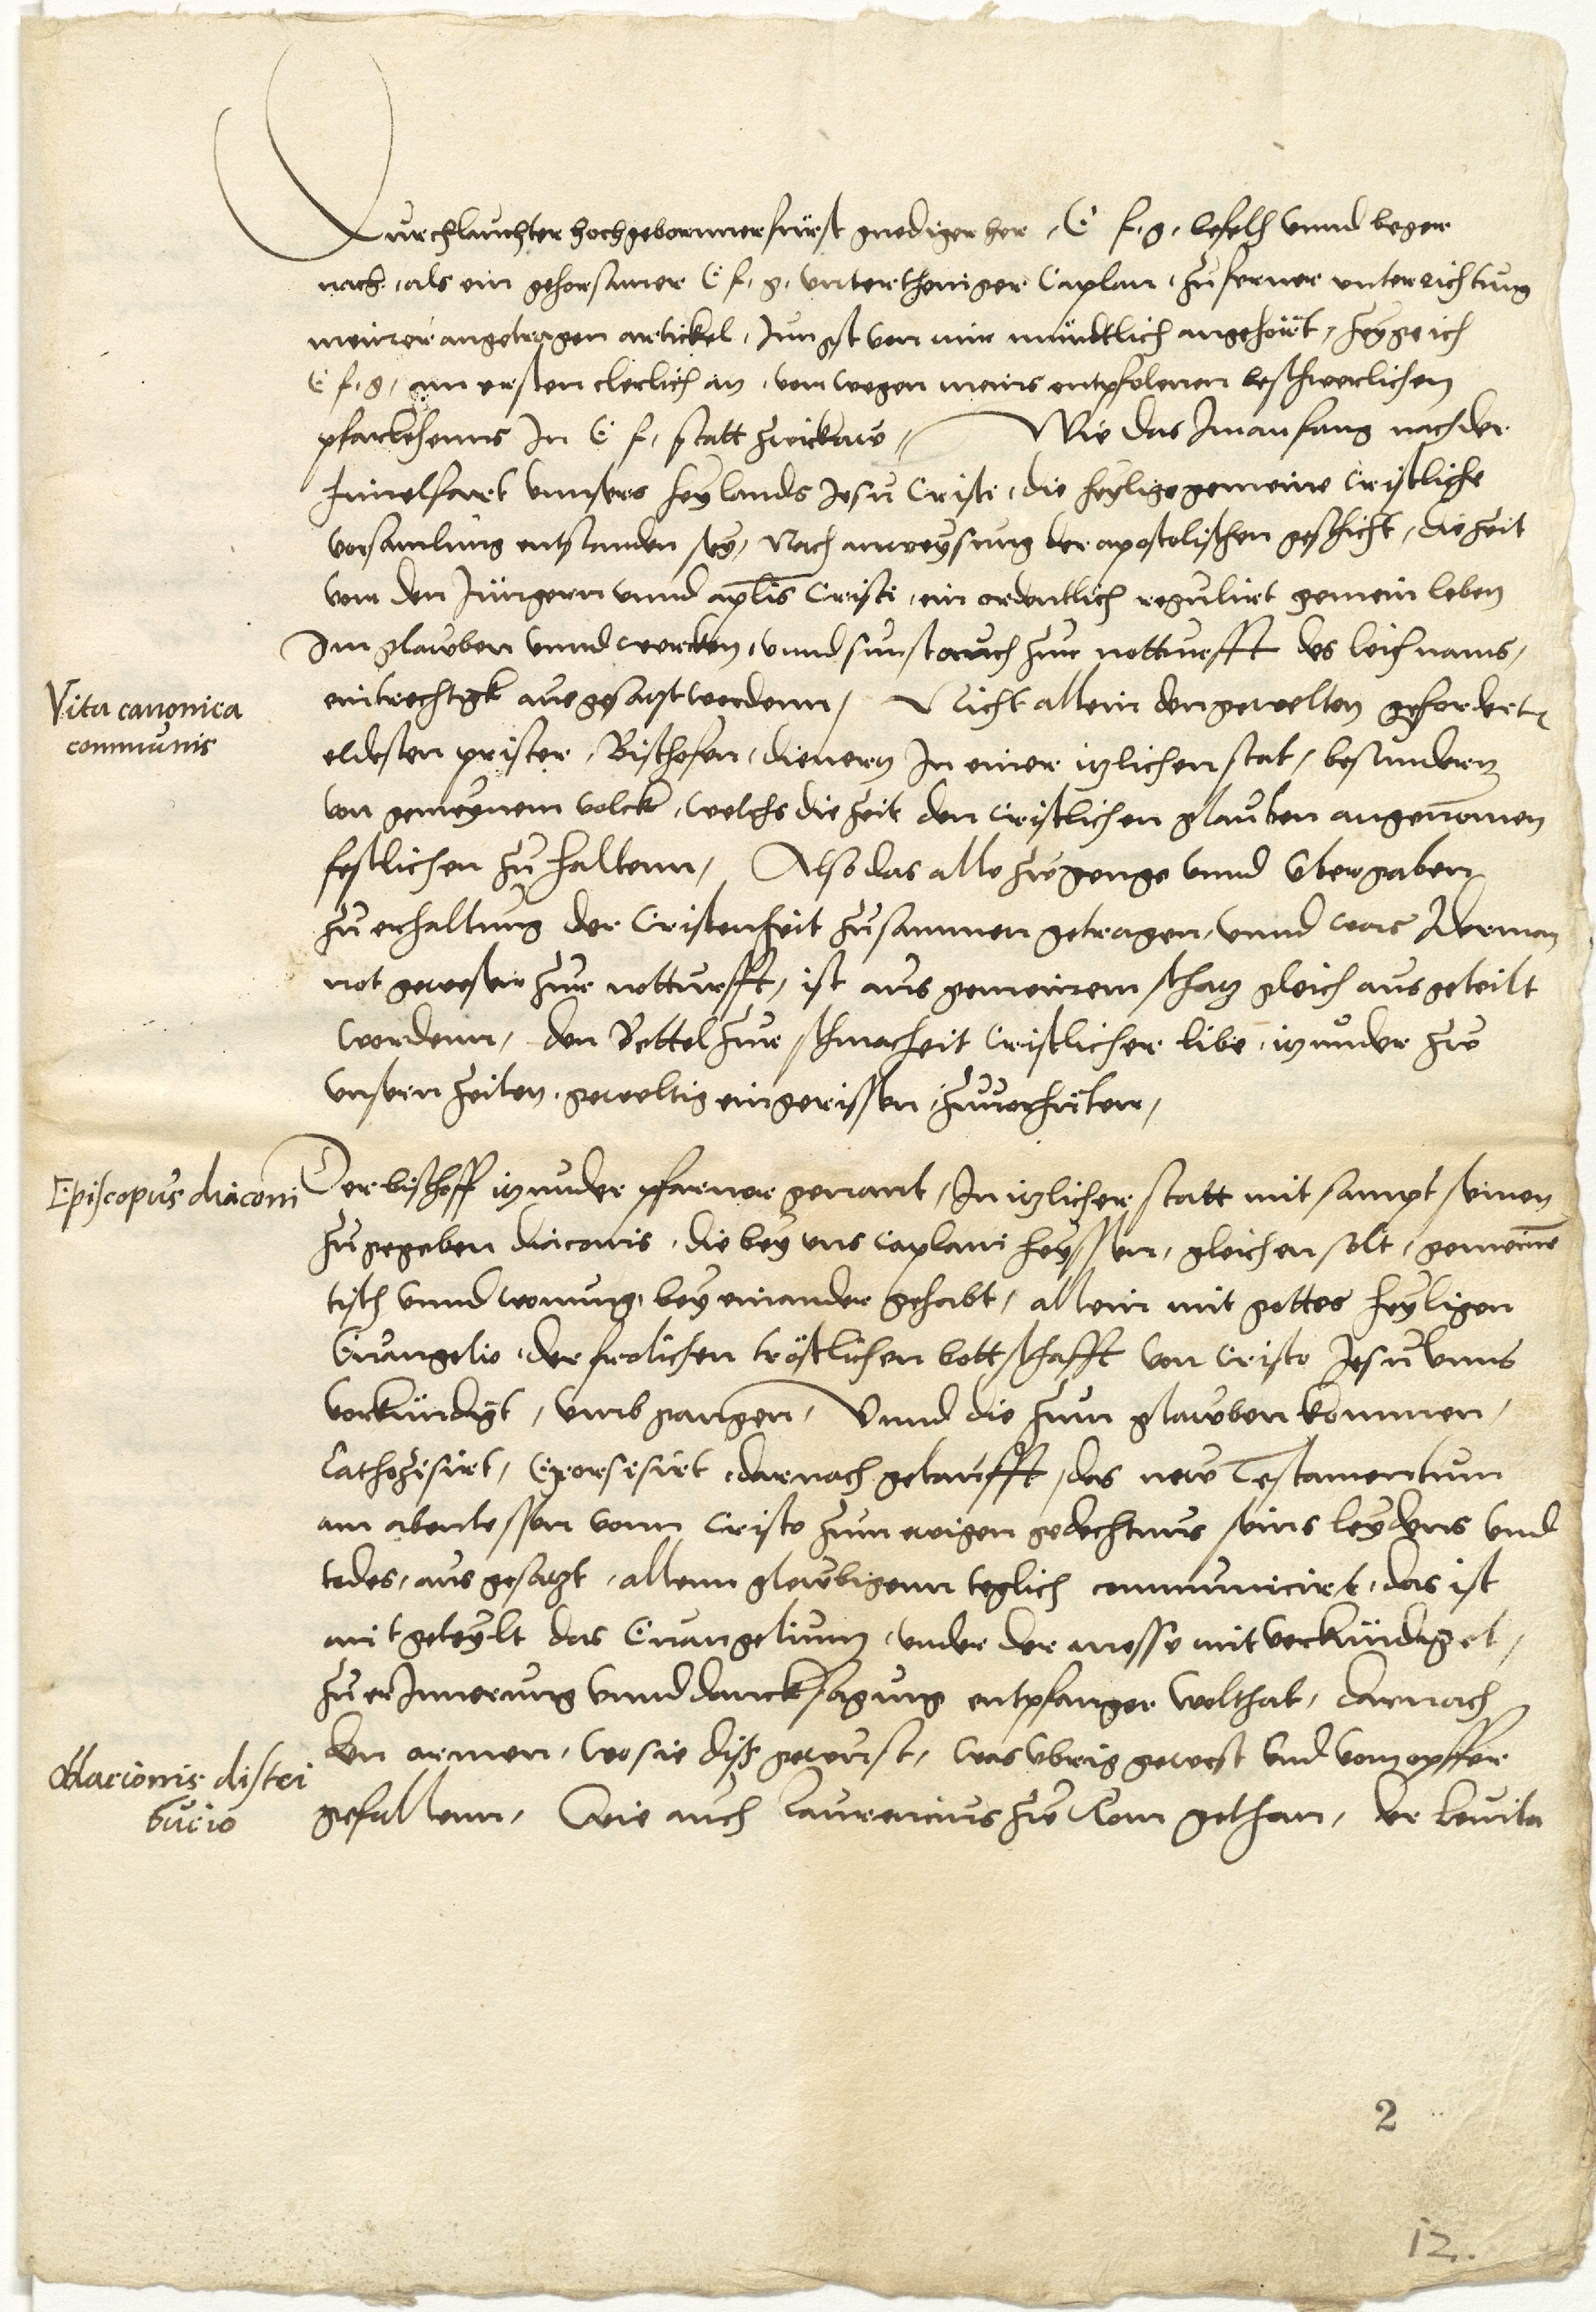 Durchlauchter hochgebornner furst gnediger her, E f, g, befelh vnnd beger
nach, als ein gehorsamer E f, g, vntertheniger Caplan, zu ferner vnterrichtung
meiner angetragen artickel, Jungst von mir mündtlich angehört, zeyge ich
E f, g, am ersten clerlich an, von wegen meins entpfolenen beschwerlichen
pfarlehenns In E f, statt zwickaw // Wie das Im anfang nach der
himelfart vnnsers heylands Jesu Cristi, die heylige gemeine Cristliche
vorsamlung entstanden sey, Nach anweysung der apostolischen geschicht, die zeit
vom den Jüngern vnnd aplis Cristi, ein ordentlich regulirt gemein leben
Im glawben vnnd wercken, vnnd sunst auch zur notturfft des leichnams,
Vita canonica
communis
eintrechtigk ausgesatzt wordenn, Nicht allein den gewelten gefordertē
eldesten prister, Bischofen, dienern In einer itzlichen stat, besundern
von gemeynem volck, welchs die zeit den Cristlichen glauben angenomen
festlichen zu haltenn, Also das alle zugenge vnnd vbergaben
zu erhaltung der Cristenheit zusammen getragen, vnnd was Iderman
not gewesen zur notturfft, ist aus gemeinem schatz gleich ausgeteilt
wordenn, den Bettel zur schmacheit Cristlicher libe, itzunder zu
vnsern zeiten, geweltig eingerissen, zuuorhüten,
Episcopus diaconi
Der bischoff itzunder pfarrer genant, In itzlicher statt mit sampt seinen
zugegeben diaconis, die bey vns Caplani heyssen, gleichen solt, gemeine
tisch vnnd wonung, bey einander gehabt, allein mit gottes heyligen
Euangelio, der frolichen tröstlichen bottschafft von Cristo Jesu vnns
vorkündigt, vmb gangen, Vnnd die zum glawben kommen,
Cathezisirt, Exorsisirt, darnach getaufft, das new Testamentum
am abentessen vonn Cristo zum ewigen gedechtnus seins leydens vnd
todes, aus gesatzt, allenn glewbigenn teglich communicirt, das ist
mit geteylt das Euangelium, vnder der messe mit verkündiget,
zu erInnerung vnnd dancksagung entpfanger wolthat, darnach
Oblacionis distri
bucio
den armen, wo sie diß gewust, was vbrig gewest vnd vom opffer
gefallenn, Wie auch Laurencius zu Rom gethan, der Leuita
2
12.